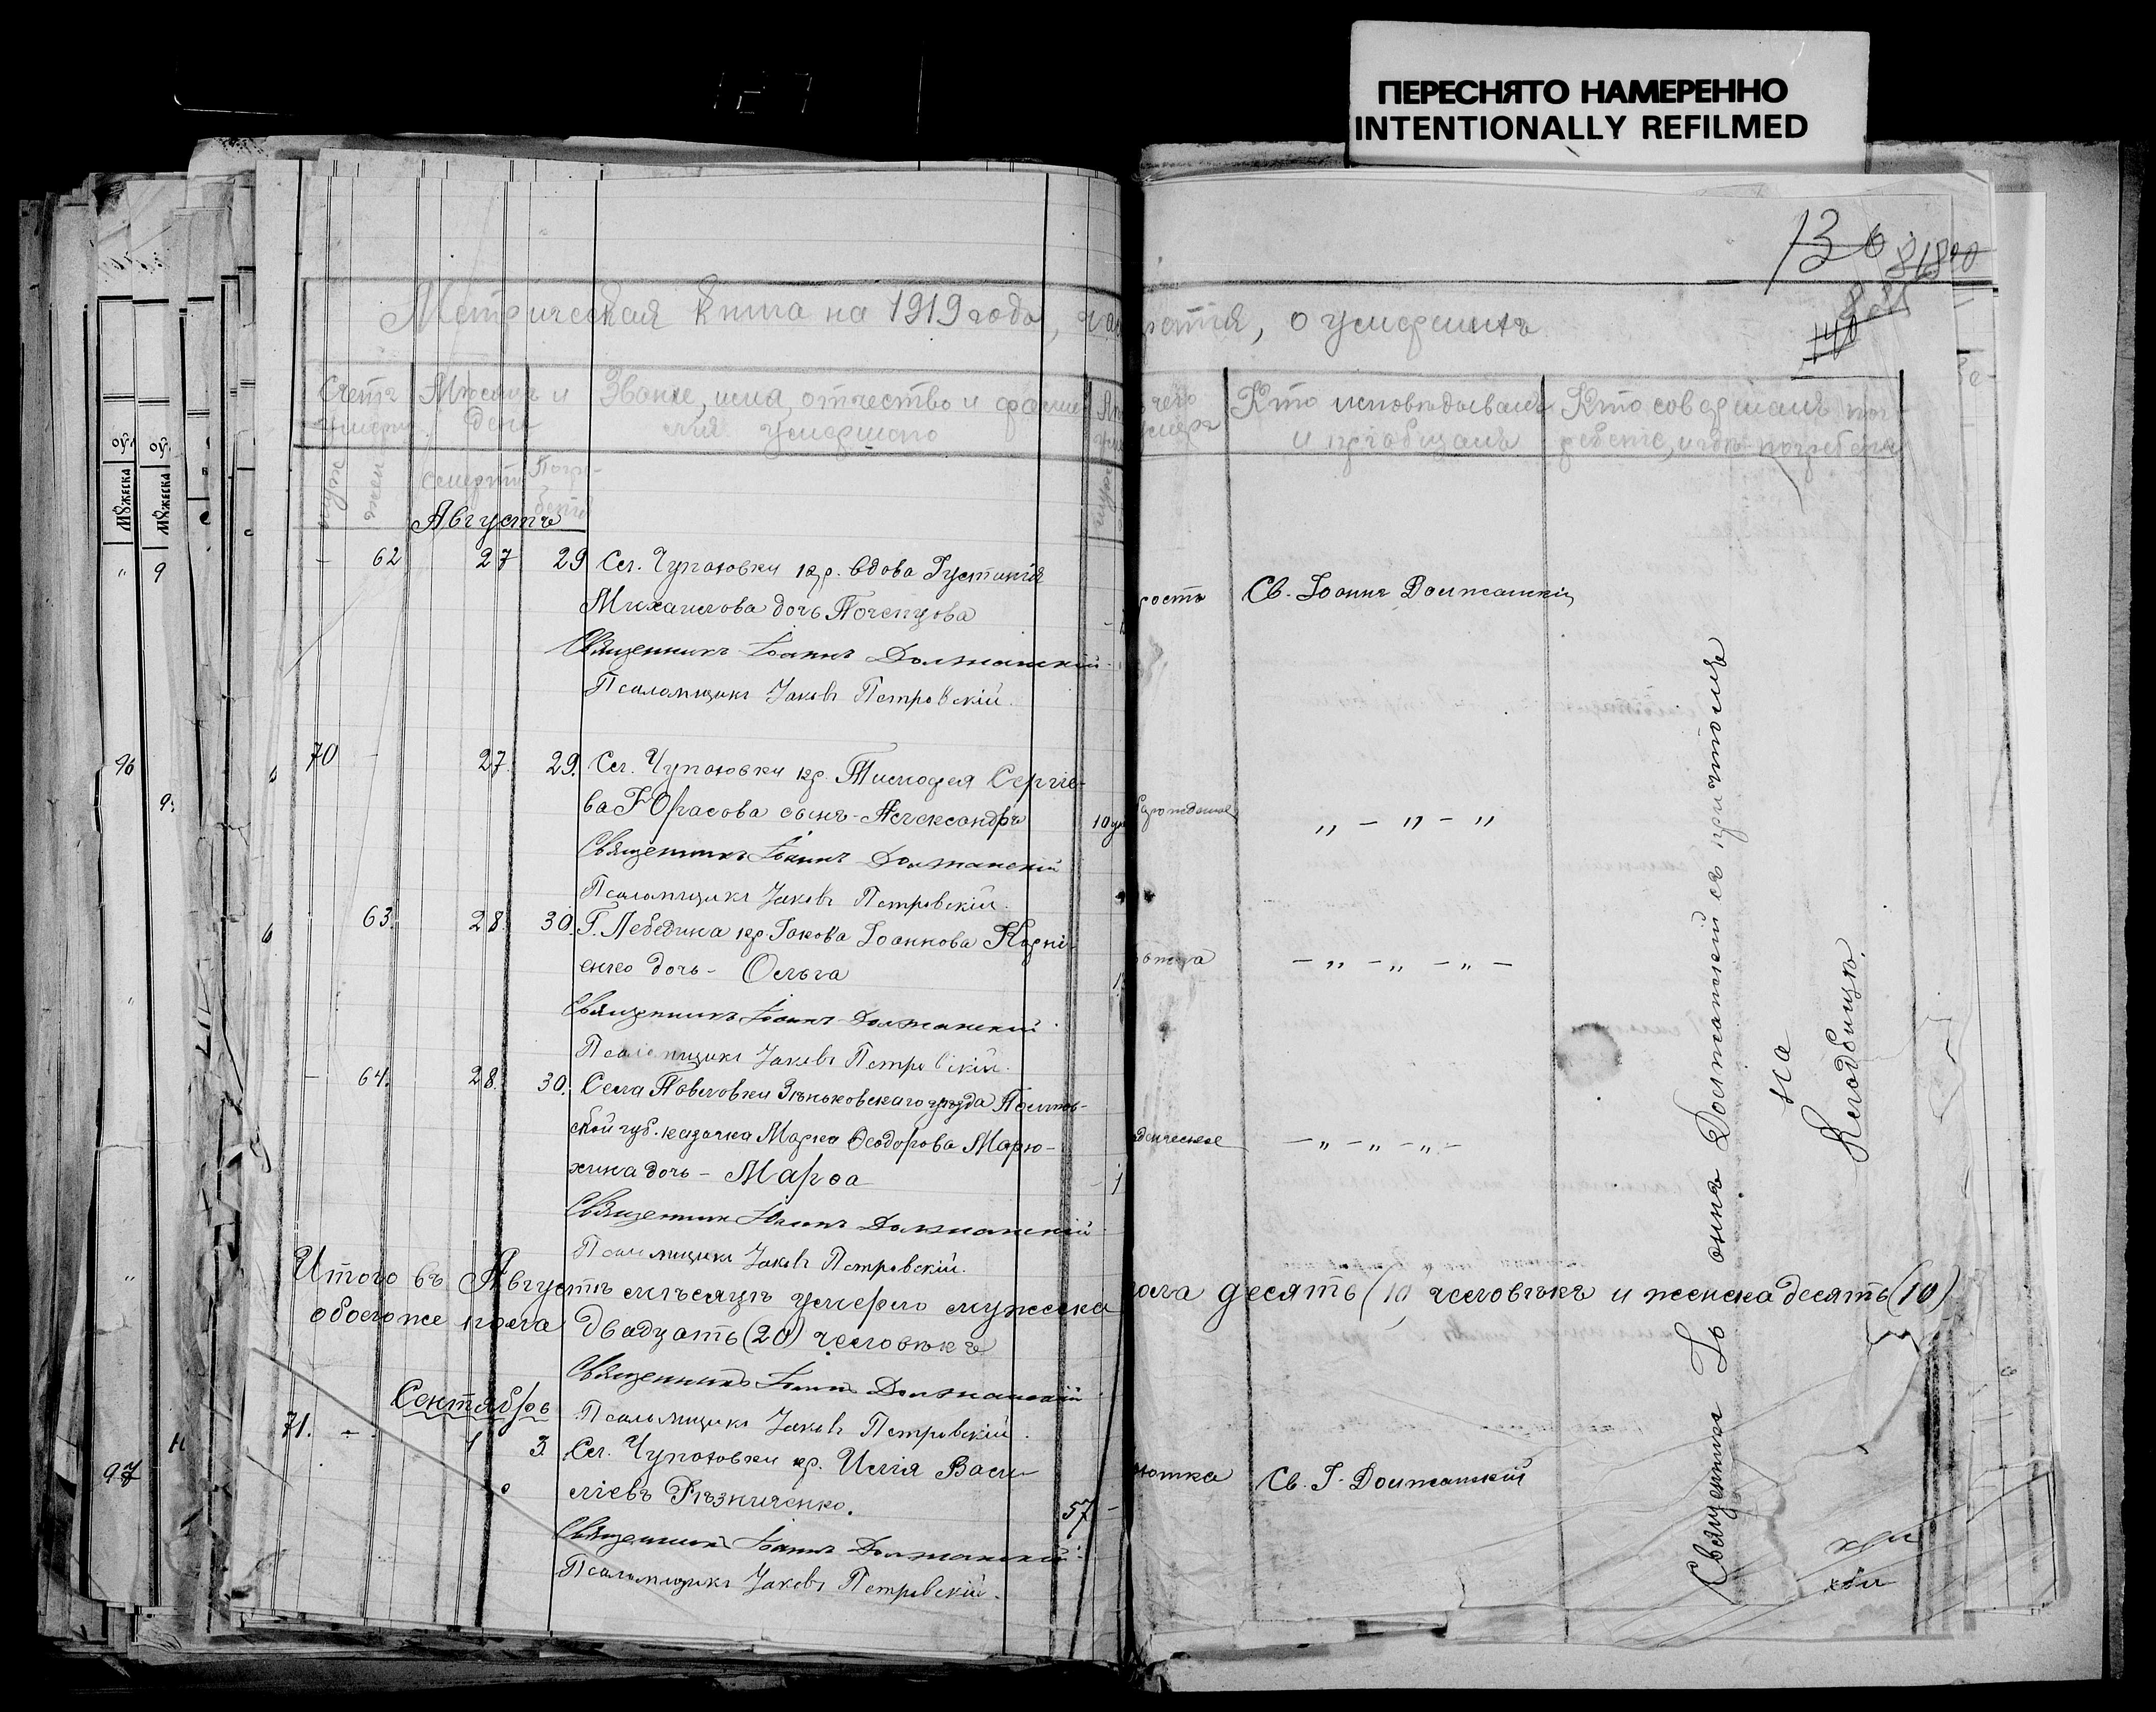 ПЕРЕСНЯТО НАМЕРЕННО
INTENTIONALLY REFILMED
130
Метрическая книга на 1919 годъ, о умершихъ
Счетъ Мѣсяцъ и Званіе, имя, отчество и фами
день лія умершаго
муж жен смерти
Кто исповѣдывалъ
и пріобщалъ
Кто совершалъ пог-
ребеніе, и гдѣ погребены
Августъ
- 62 27 29 Сл. Чупаховки кр. вдова Іустинія
Михаилова дочь Поченцова
Священникъ Іоаннъ Должанскій
Псаломщикъ Іаковъ Петровскій.
рость Св. Іоаннъ Должанскій
70 - 27. 29. Сл. Чупаховки кр. Тимофея Сергіе-
ва Юрасова сынъ - Александръ
10
Священникъ Іоаннъ Должанскій
Псаломщикъ Іаковъ Петровскій.
„ - „ - „
63. 28. 30. Г. Лебедина кр. Іакова Іоаннова Корні-
енко дочь - Ольга
Священникъ Іоаннъ Должанскій
Псаломщикъ Іаковъ Петровскій.
- „ - „ - „ -
- 64. 28. 30. Села Павловки Зѣньковскаго уѣзда Полтав-
ской губ. казачка Марка Ѳеодорова Марю-
хина дочь - Марѳа
Священник Іоаннъ Должанскій
Псаломщикъ Іаковъ Петровскій.
- „ - „ - „ -
Итого въ Августѣ мѣсяцѣ умерло мужеска пола десять (10) человѣкъ и женска десять (10)
обоего же пола двадцать (20) человѣкъ
Священникъ Іоаннъ Должанскій
Псаломщикъ Іаковъ Петровскій.
Сентябрь
71. - 1 3 Сл. Чупаховки кр. Илія Васи-
ліевъ Рѣзниченко.
57 -
Священникъ Іоаннъ Должанскій
Псаломщикъ Іаковъ Петровскій.
Св. І. Должанскій
Священникъ Іоаннъ Должанскій съ причтомъ
на
Кладбищѣ.
мужеска
мужеска
9
96
97